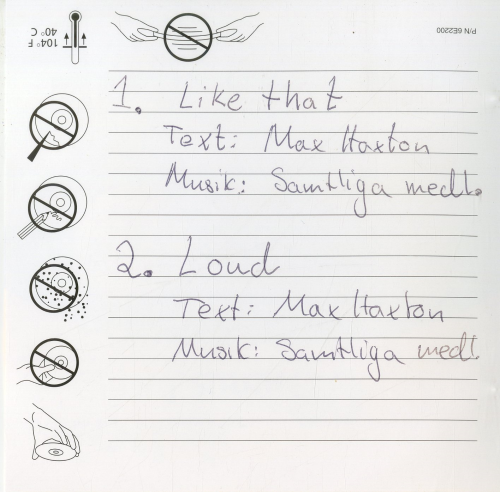 104° F
40° C
P/N 6E2200
1. Like that
Text: Max Haxton
Musik: Samtliga medl.
2. Loud
Text: Max Haxton
Musik: Samtliga medl.